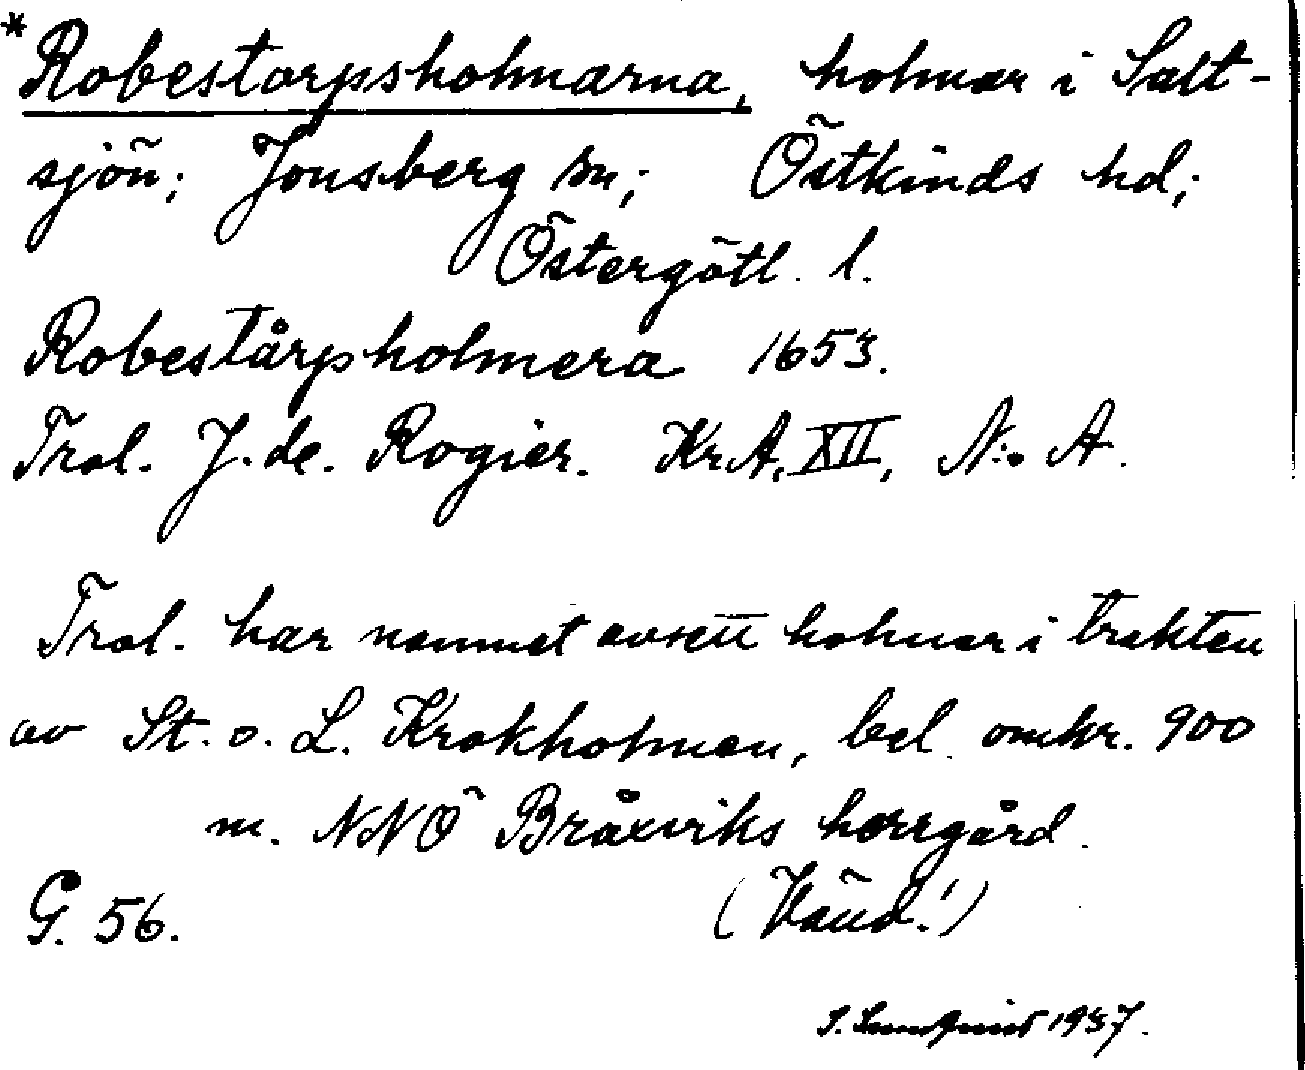 *Robestorpsholmarna, holmar i Salt-
sjön; Jonsberg sn; Östkinds hd;
Östergötl. l.
Robestårpholmera 1653.
Trol. J. de. Rogier. KrA, XII, N:o A.
Trol. har namnet avsett holmar i trakten
av St. o. L. Krokholmen, bel. omkr. 900
m. NNÖ Bråxviks herrgård.
G. 56. (Vänd!)
S. Sundquist 1937.